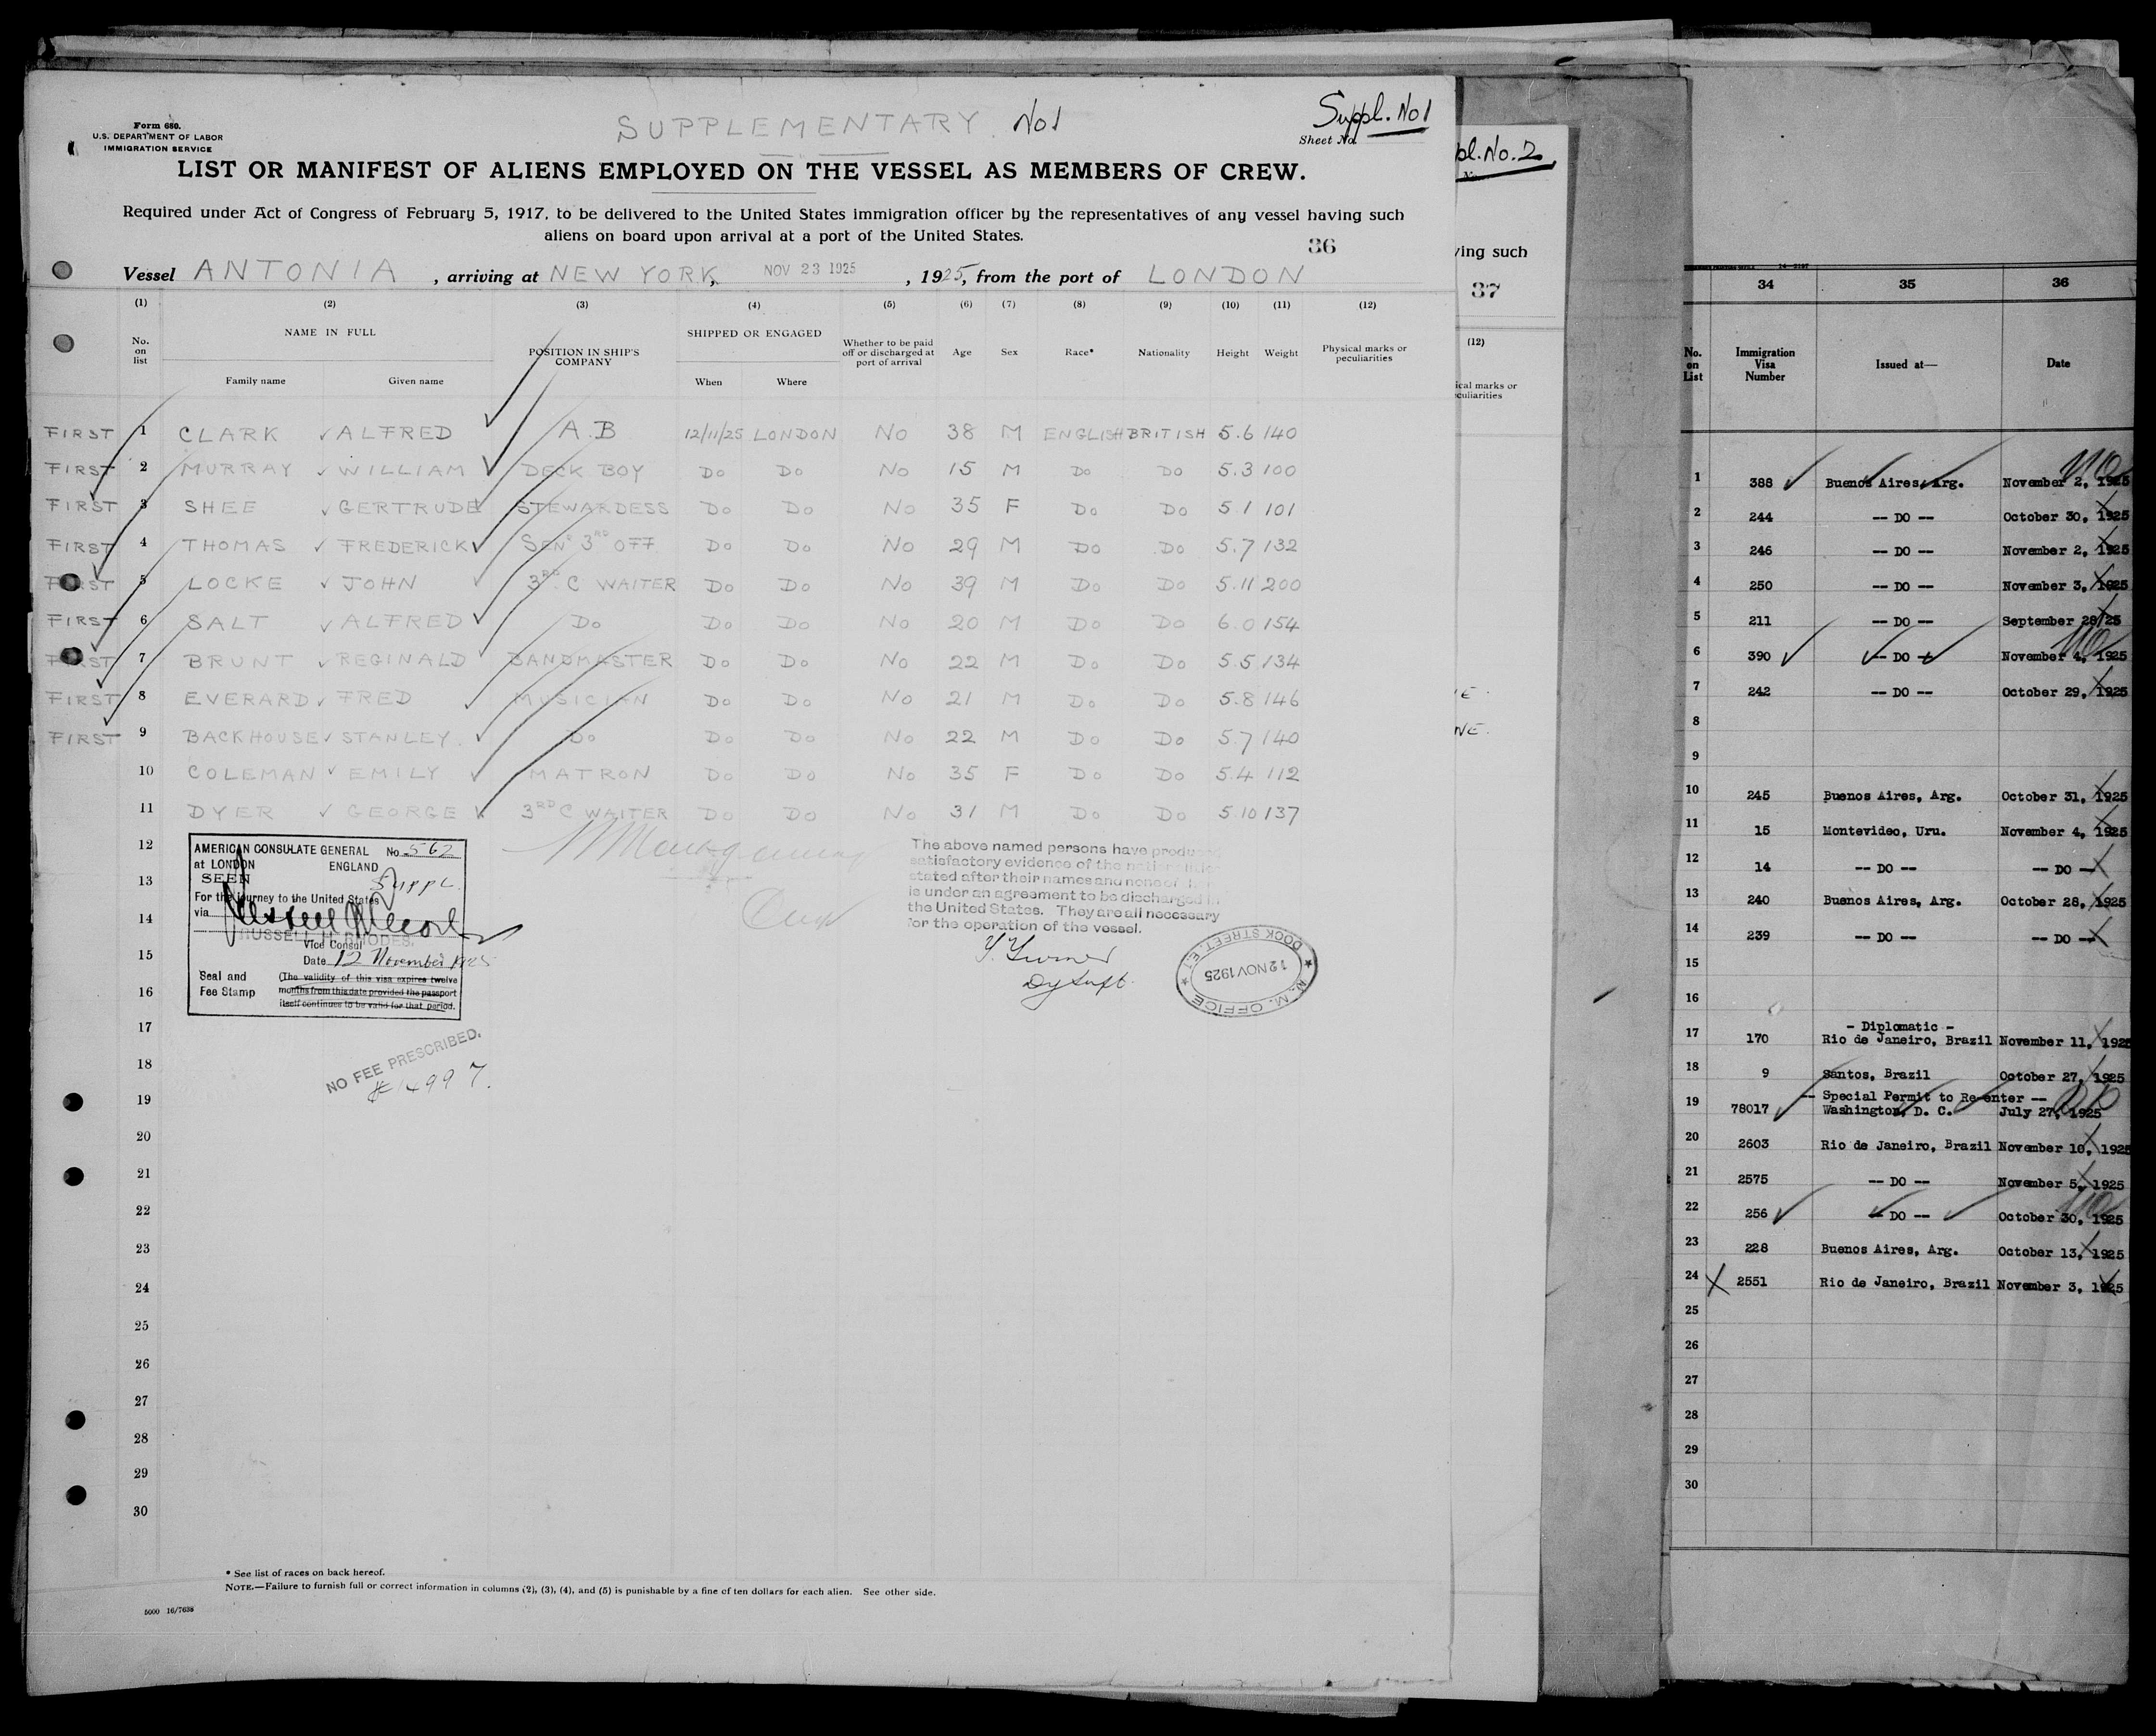 Form 680.
U.S. DEPARTMENT OF LABOR
IMMIGRATION SERVICE
SUPPLEMENTARY No 1
Suppl. No 1
Sheet No.
LIST OR MANIFEST OF ALIENS EMPLOYED ON THE VESSEL AS MEMBERS OF CREW.
Required under Act of Congress of February 5, 1917, to be delivered to the United States immigration officer by the representatives of any vessel having such
aliens on board upon arrival at a port of the United States.
36
Vessel ANTONIA, arriving at NEW YORK, NOV 23 1925, 1925, from the port of LONDON
(1) (2) (3) (4) (5) (6) (7) (8) (9) (10) (11) (12)
No. on list NAME IN FULL Family name Given name POSITION IN SHIP'S COMPANY SHIPPED OR ENGAGED When Where Whether to be paid off or discharged at port of arrival Age Sex Race* Nationality Height Weight Physical marks or peculiarities
FIRST 1 CLARK ALFRED A.B 12/11/25 LONDON No 38 M ENGLISH BRITISH 5.6 140
FIRST 2 MURRAY WILLIAM DECK BOY Do Do No 15 M Do Do 5.3 100
FIRST 3 SHEE GERTRUDE STEWARDESS Do Do No 35 F Do Do 5.1 101
FIRST 4 THOMAS FREDERICK SEN. 3RD OFF. Do Do No 29 M Do Do 5.7 132
FIRST 5 LOCKE JOHN 3RD C WAITER Do Do No 39 M Do Do 5.11 200
FIRST 6 SALT ALFRED Do Do Do No 20 M Do Do 6.0 154
FIRST 7 BRUNT REGINALD BANDMASTER Do Do No 22 M Do Do 5.5 134
FIRST 8 EVERARD FRED MUSICIAN Do Do No 21 M Do Do 5.8 146
FIRST 9 BACKHOUSE STANLEY Do Do Do No 22 M Do Do 5.7 140
10 COLEMAN EMILY MATRON Do Do No 35 F Do Do 5.4 112
11 DYER GEORGE 3RD C WAITER Do Do No 31 M Do Do 5.10 137
12
13
14
15
16
17
18
19
20
21
22
23
24
25
26
27
28
29
30
AMERICAN CONSULATE GENERAL No 562
at LONDON ENGLAND
SEEN Suppl.
For the journey to the United States
via
RUSSELL H. RHODES.
Vice Consul
Date 12 November 1925
Seal and Fee Stamp
(The validity of this visa expires twelve
months from this date provided the passport
itself continues to be valid for that period.
NO FEE PRESCRIBED.
The above named persons have produced
satisfactory evidence of the nationalities
stated after their names and none of them
is under an agreement to be discharged in
the United States. They are all necessary
for the operation of the vessel.
Y. Turner
Dy Supt.
M. M. OFFICE
12 NOV 1925
DOCK STREET. E1
* See list of races on back hereof.
NOTE.—Failure to furnish full or correct information in columns (2), (3), (4), and (5) is punishable by a fine of ten dollars for each alien. See other side.
5000 16/7638
pl. No. 2
No.
ving such
37
(12)
ical marks or
eculiarities
E.
NE.
34 35 36
No. on List Immigration Visa Number Issued at— Date
1 388 Buenos Aires, Arg. November 2, 1925
2 244 -- DO -- October 30, 1925
3 246 -- DO -- November 2, 1925
4 250 -- DO -- November 3, 1925
5 211 -- DO -- September 28/25
6 390 -- DO -- November 4, 1925
7 242 -- DO -- October 29, 1925
8
9
10 245 Buenos Aires, Arg. October 31, 1925
11 15 Montevideo, Uru. November 4, 1925
12 14 -- DO -- -- DO --
13 240 Buenos Aires, Arg. October 28, 1925
14 239 -- DO -- -- DO --
15
16
- Diplomatic -
17 170 Rio de Janeiro, Brazil November 11, 1925
18 9 Santos, Brazil October 27, 1925
-- Special Permit to Re-enter --
19 78017 Washington, D. C. July 27, 1925
20 2603 Rio de Janeiro, Brazil November 10, 1925
21 2575 -- DO -- November 5, 1925
22 256 -- DO -- October 30, 1925
23 228 Buenos Aires, Arg. October 13, 1925
24 2551 Rio de Janeiro, Brazil November 3, 1925
25
26
27
28
29
30